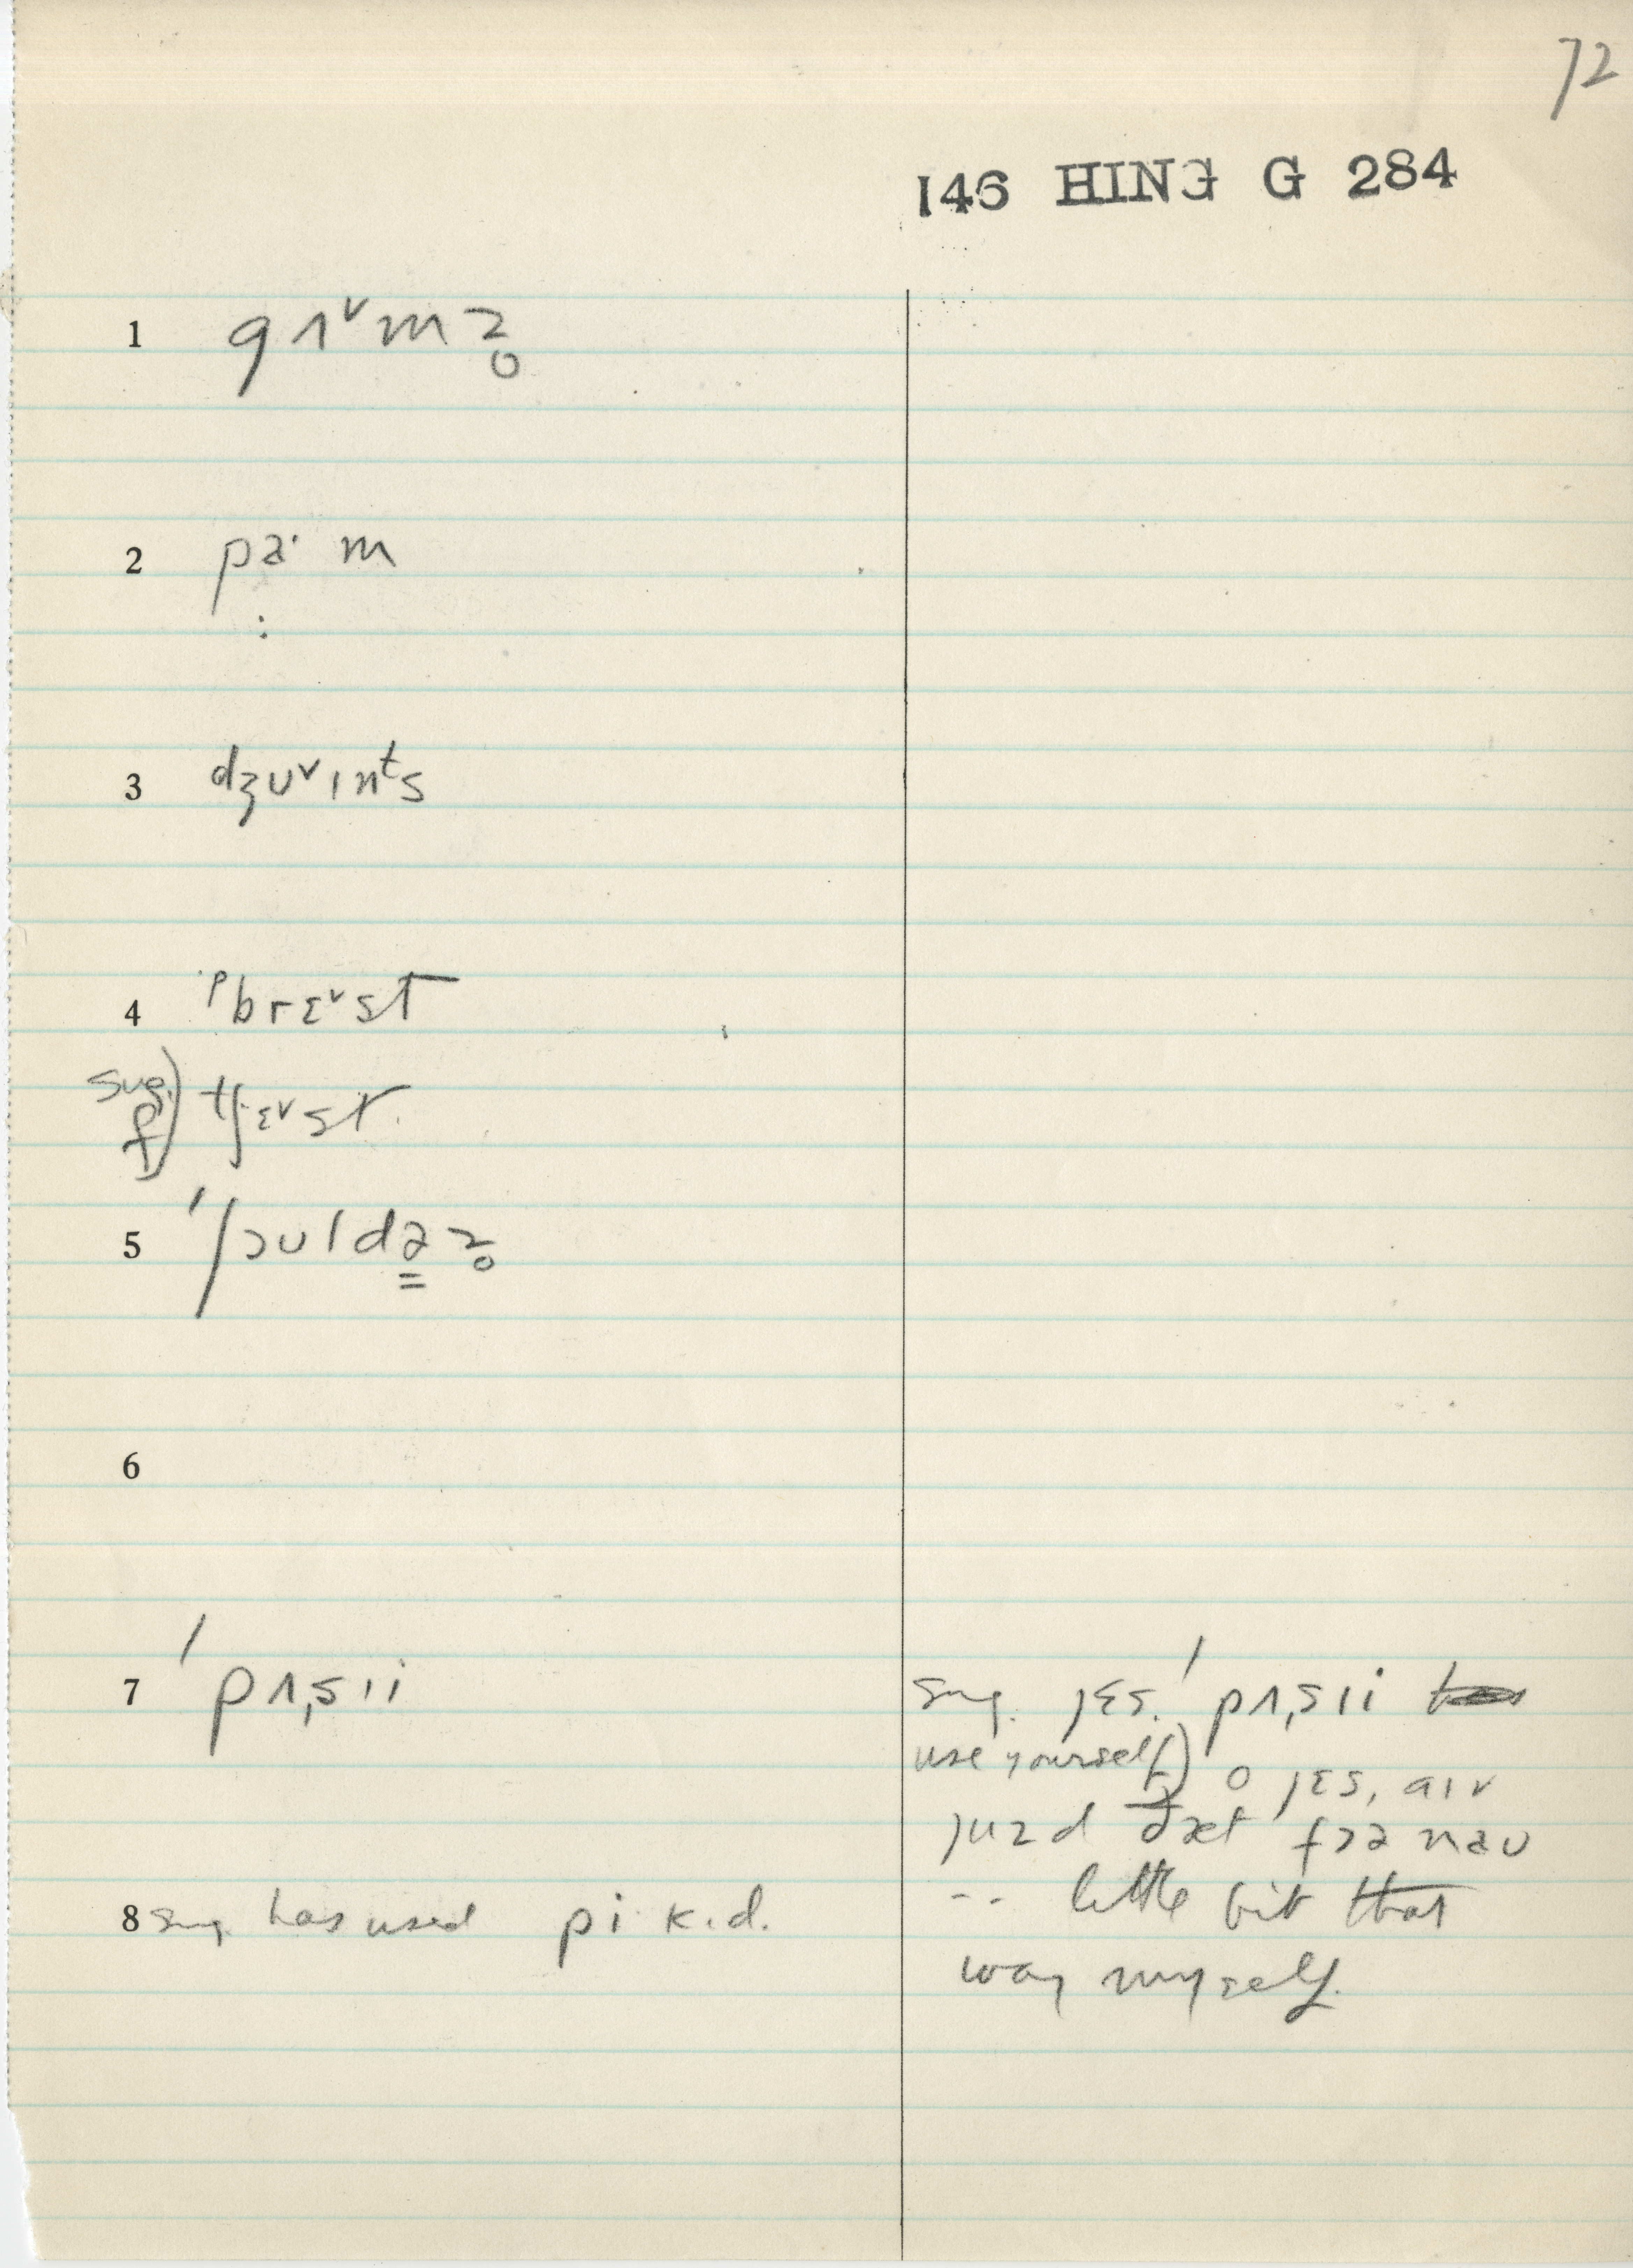 72
146 HING G 284
1 gʌ˅mz̥
2 pa·m
3 dʒu˅ɪnᵗs
4 ᵖbrɛ˅st
sug. f) tʃɛ˅st.
5 ˈʃoʊldəz̥
6
7 ˈpʌˌsɪi
sug. jɛs. ˈpʌˌsɪi
use yourself) o jɛs, aɪv
juzd ðæt fɔə naʊ
-- little bit that
way myself.
8 sug. has used pikɪd.